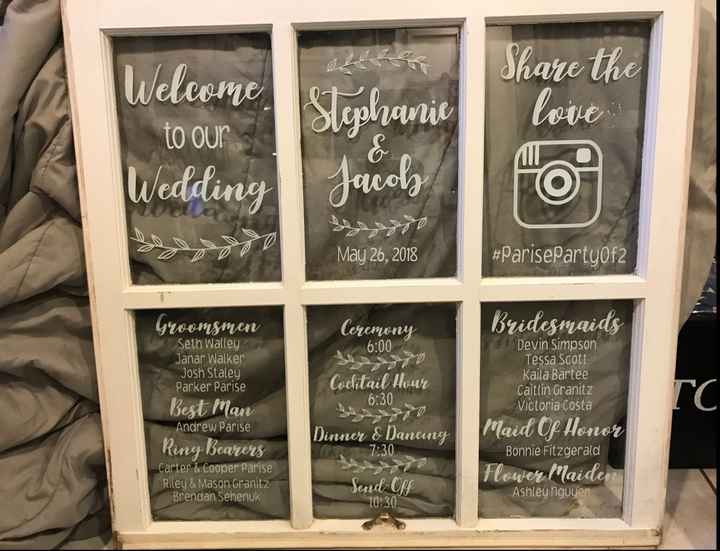 Welcome
to our
Wedding
Stephanie
&
Jacob
May 26, 2018
Share the
love
#ParisePartyOf2
Groomsmen
Seth Walley
Janar Walker
Josh Staley
Parker Parise
Best Man
Andrew Parise
Ring Bearers
Carter & Cooper Parise
Riley & Mason Granitz
Brendan Sehenuk
Ceremony
6:00
Cocktail Hour
6:30
Dinner & Dancing
7:30
Send-Off
10:30
Bridesmaids
Devin Simpson
Tessa Scott
Kaila Bartee
Caitlin Granitz
Victoria Costa
Maid Of Honor
Bonnie Fitzgerald
Flower Maiden
Ashley Nguyen
TC